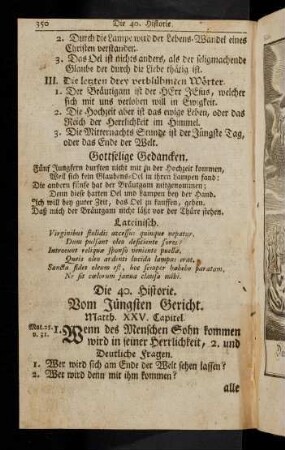 350 Die 40. Historie.
2. Durch die Lampe wird der Lebens-Wandel eines
Christen verstanden.
3. Das Oel ist nichts anders, als der seligmachende
Glaube der durch die Liebe thätig ist.
III. Die letzten drey verblühmten Wörter.
1. Der Bräutigam ist der HErr JEsus, welcher
sich mit uns verloben will in Ewigkeit.
2. Die Hochzeit aber ist das ewige Leben, oder das
Reich der Herrlichkeit im Himmel.
3. Die Mitternachts Stunde ist der Jüngste Tag,
oder das Ende der Welt.
Gottselige Gedancken.
Fünf Jungfern durften nicht mit zu der Hochzeit kommen,
Weil sich kein Glaubens-Oel in ihren Lampen fand:
Die andern fünfe hat der Bräutgam mitgenommen;
Dann diese hatten Oel und Lampen bey der Hand.
Ich will bey guter Zeit, das Oel zu kauffen, gehen.
Daß mich der Bräutgam nicht läßt vor der Thüre stehen.
Lateinisch.
Virginibus stolidis accessus quinque negatur,
Dum pulsant oleo deficiente fores:
Introeunt reliquæ sponso veniente puellæ,
Queis oleo ardenti lucida lampas erat.
Sancta fides oleum est, hoc semper habebo paratum,
Ne sit cælorum janua clausa mihi.
Die 40. Historie.
Vom Jüngsten Gericht.
Matth. XXV. Capitel.
Mat. 25.
v. 31.
1. Wenn des Menschen Sohn kommen
wird in seiner Herrlichkeit, 2. und
Deutliche Fragen.
1. Wer wird sich am Ende der Welt sehen lassen?
2. Wer wird denn mit ihm kommen?
alle